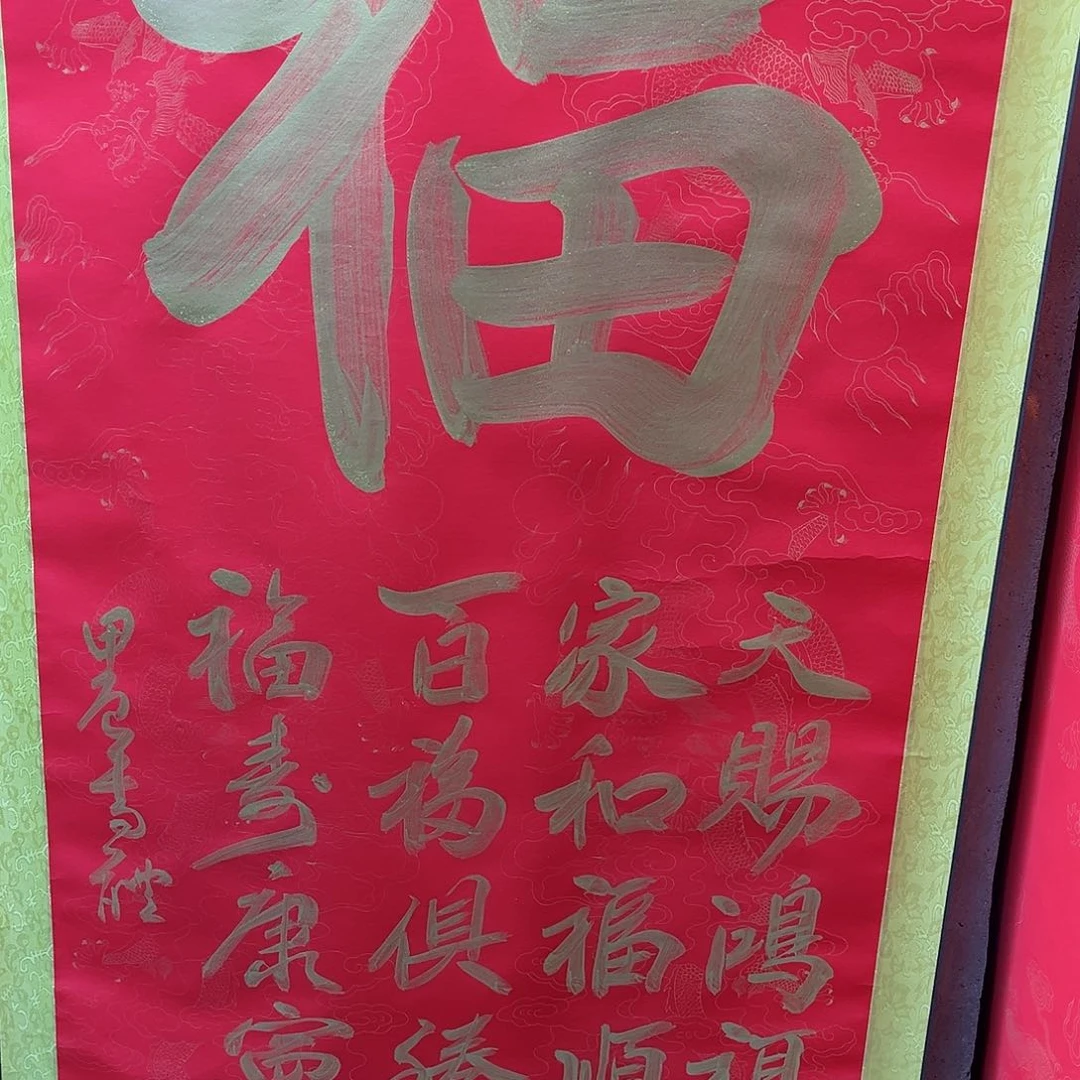 福
天賜鴻
家和福順
百福俱
福壽康寧
甲辰